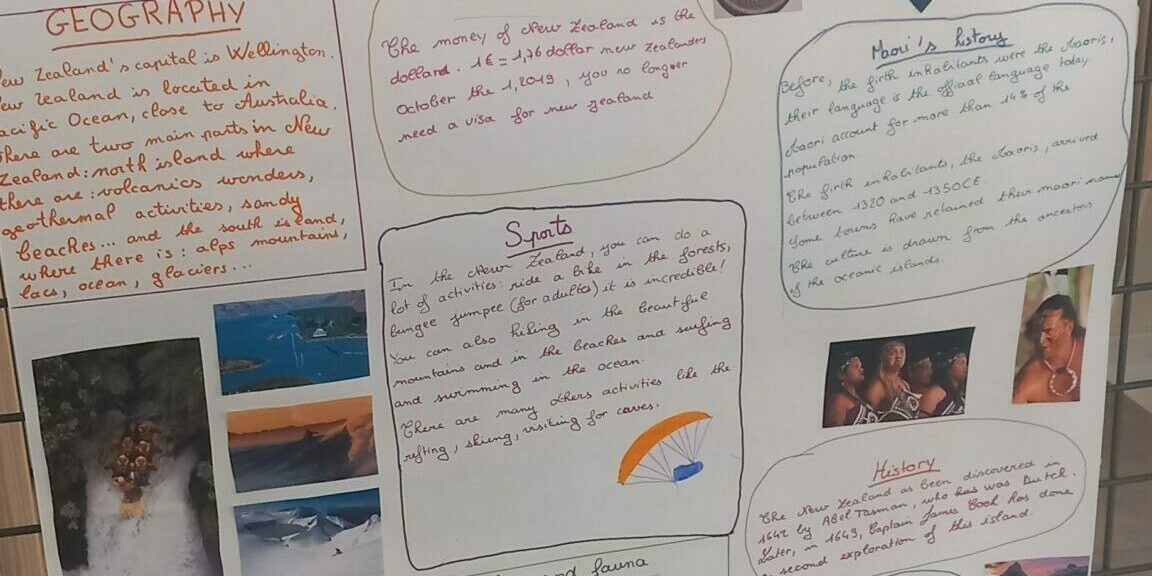 GEOGRAPHY
New Zealand's capital is Wellington.
New Zealand is located in
Pacific Ocean, close to Australia.
There are two main parts in New
Zealand: north island where
there are: volcanics wonders,
geothermal activities, sandy
beaches... and the south island,
where there is: alps mountains,
lacs, ocean, glaciers...
The money of New Zealand is the
dolland. 1€ = 1,76 dollar new zealanders
October the 1, 2019, you no longer
need a visa for new zealand
Maori's history
Before, the firth inhabitants were the Maoris,
their language is the official language today.
Maori account for more than 14% of the
population.
The firth inhabitants, the Maoris, arrived
between 1320 and 1350CE.
Some towns have retained their maori name
The culture is drawn from the ancestors
of the oceanic islands.
Sports
Inn the New Zealand, you can do a
lot of activities: ride a bike in the forests,
bungee jumpee (for adultes) it is incredible!
You can also hiking in the beautiful
mountains and in the beaches and surfing
and swimming in the ocean.
There are many others activities like the
rafting, skiing, visiting for caves.
History
The New Zealand as been discovered in
1642 by Abel Tasman, who was Dutch.
Later, in 1649, Captain James Cook has done
second exploration of this island.
fauna